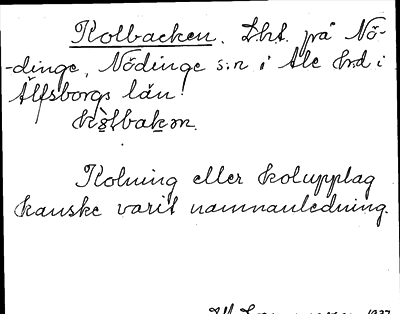 Kolbacken. Lht. på Nö-
-dinge, Nödinge s:n i Ale hrd i
Älfsborgs län.
kòlbakən.
Kolning eller kolupplag
kanske varit namnanledning.